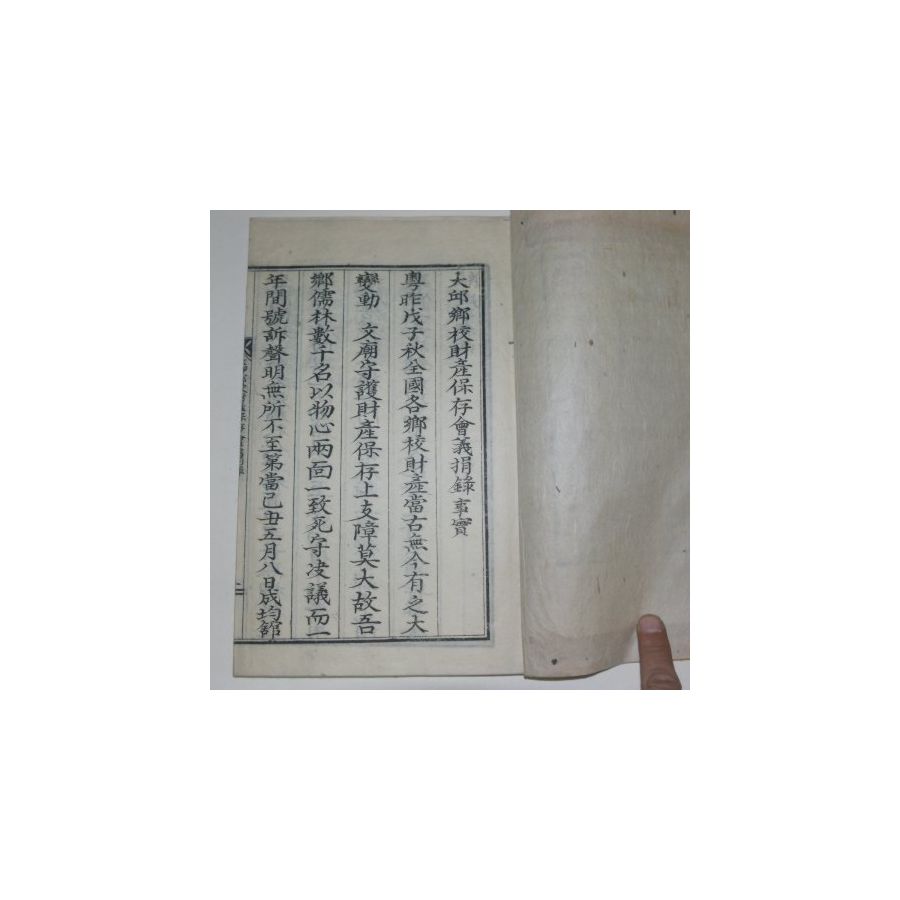 大邱鄉校財產保存會義捐錄事實
粵昨戊子秋全國各鄉校財產當古無今有之大
變動 文廟守護財產保存上支障莫大故吾
鄉儒林數千名以物心兩面一致死守决議而一
年間號訴聲明無所不至第當己丑五月八日成均館